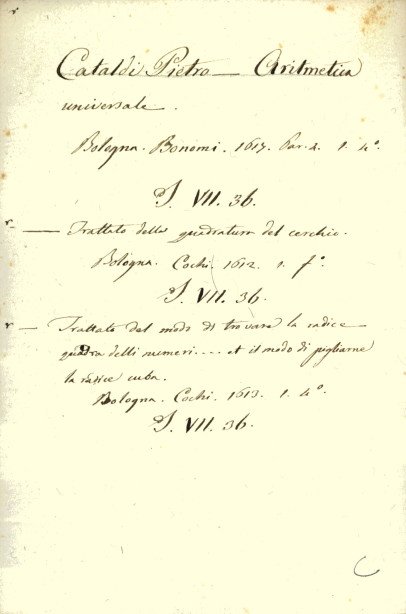 r
Cataldi Pietro — Aritmetica
universale.
Bologna. Bonomi. 1617. Par. 4. 1. 4º.
S. VII. 36.
r — Trattato della quadratura del cerchio.
Bologna. Cochi. 1612. 1. fº.
S. VII. 36.
r — Trattato del modo di trovare la radice
quadra delli numeri.... et il modo di pigliarne
la radice cuba.
Bologna. Cochi. 1613. 1. 4º.
S. VII. 36.
C